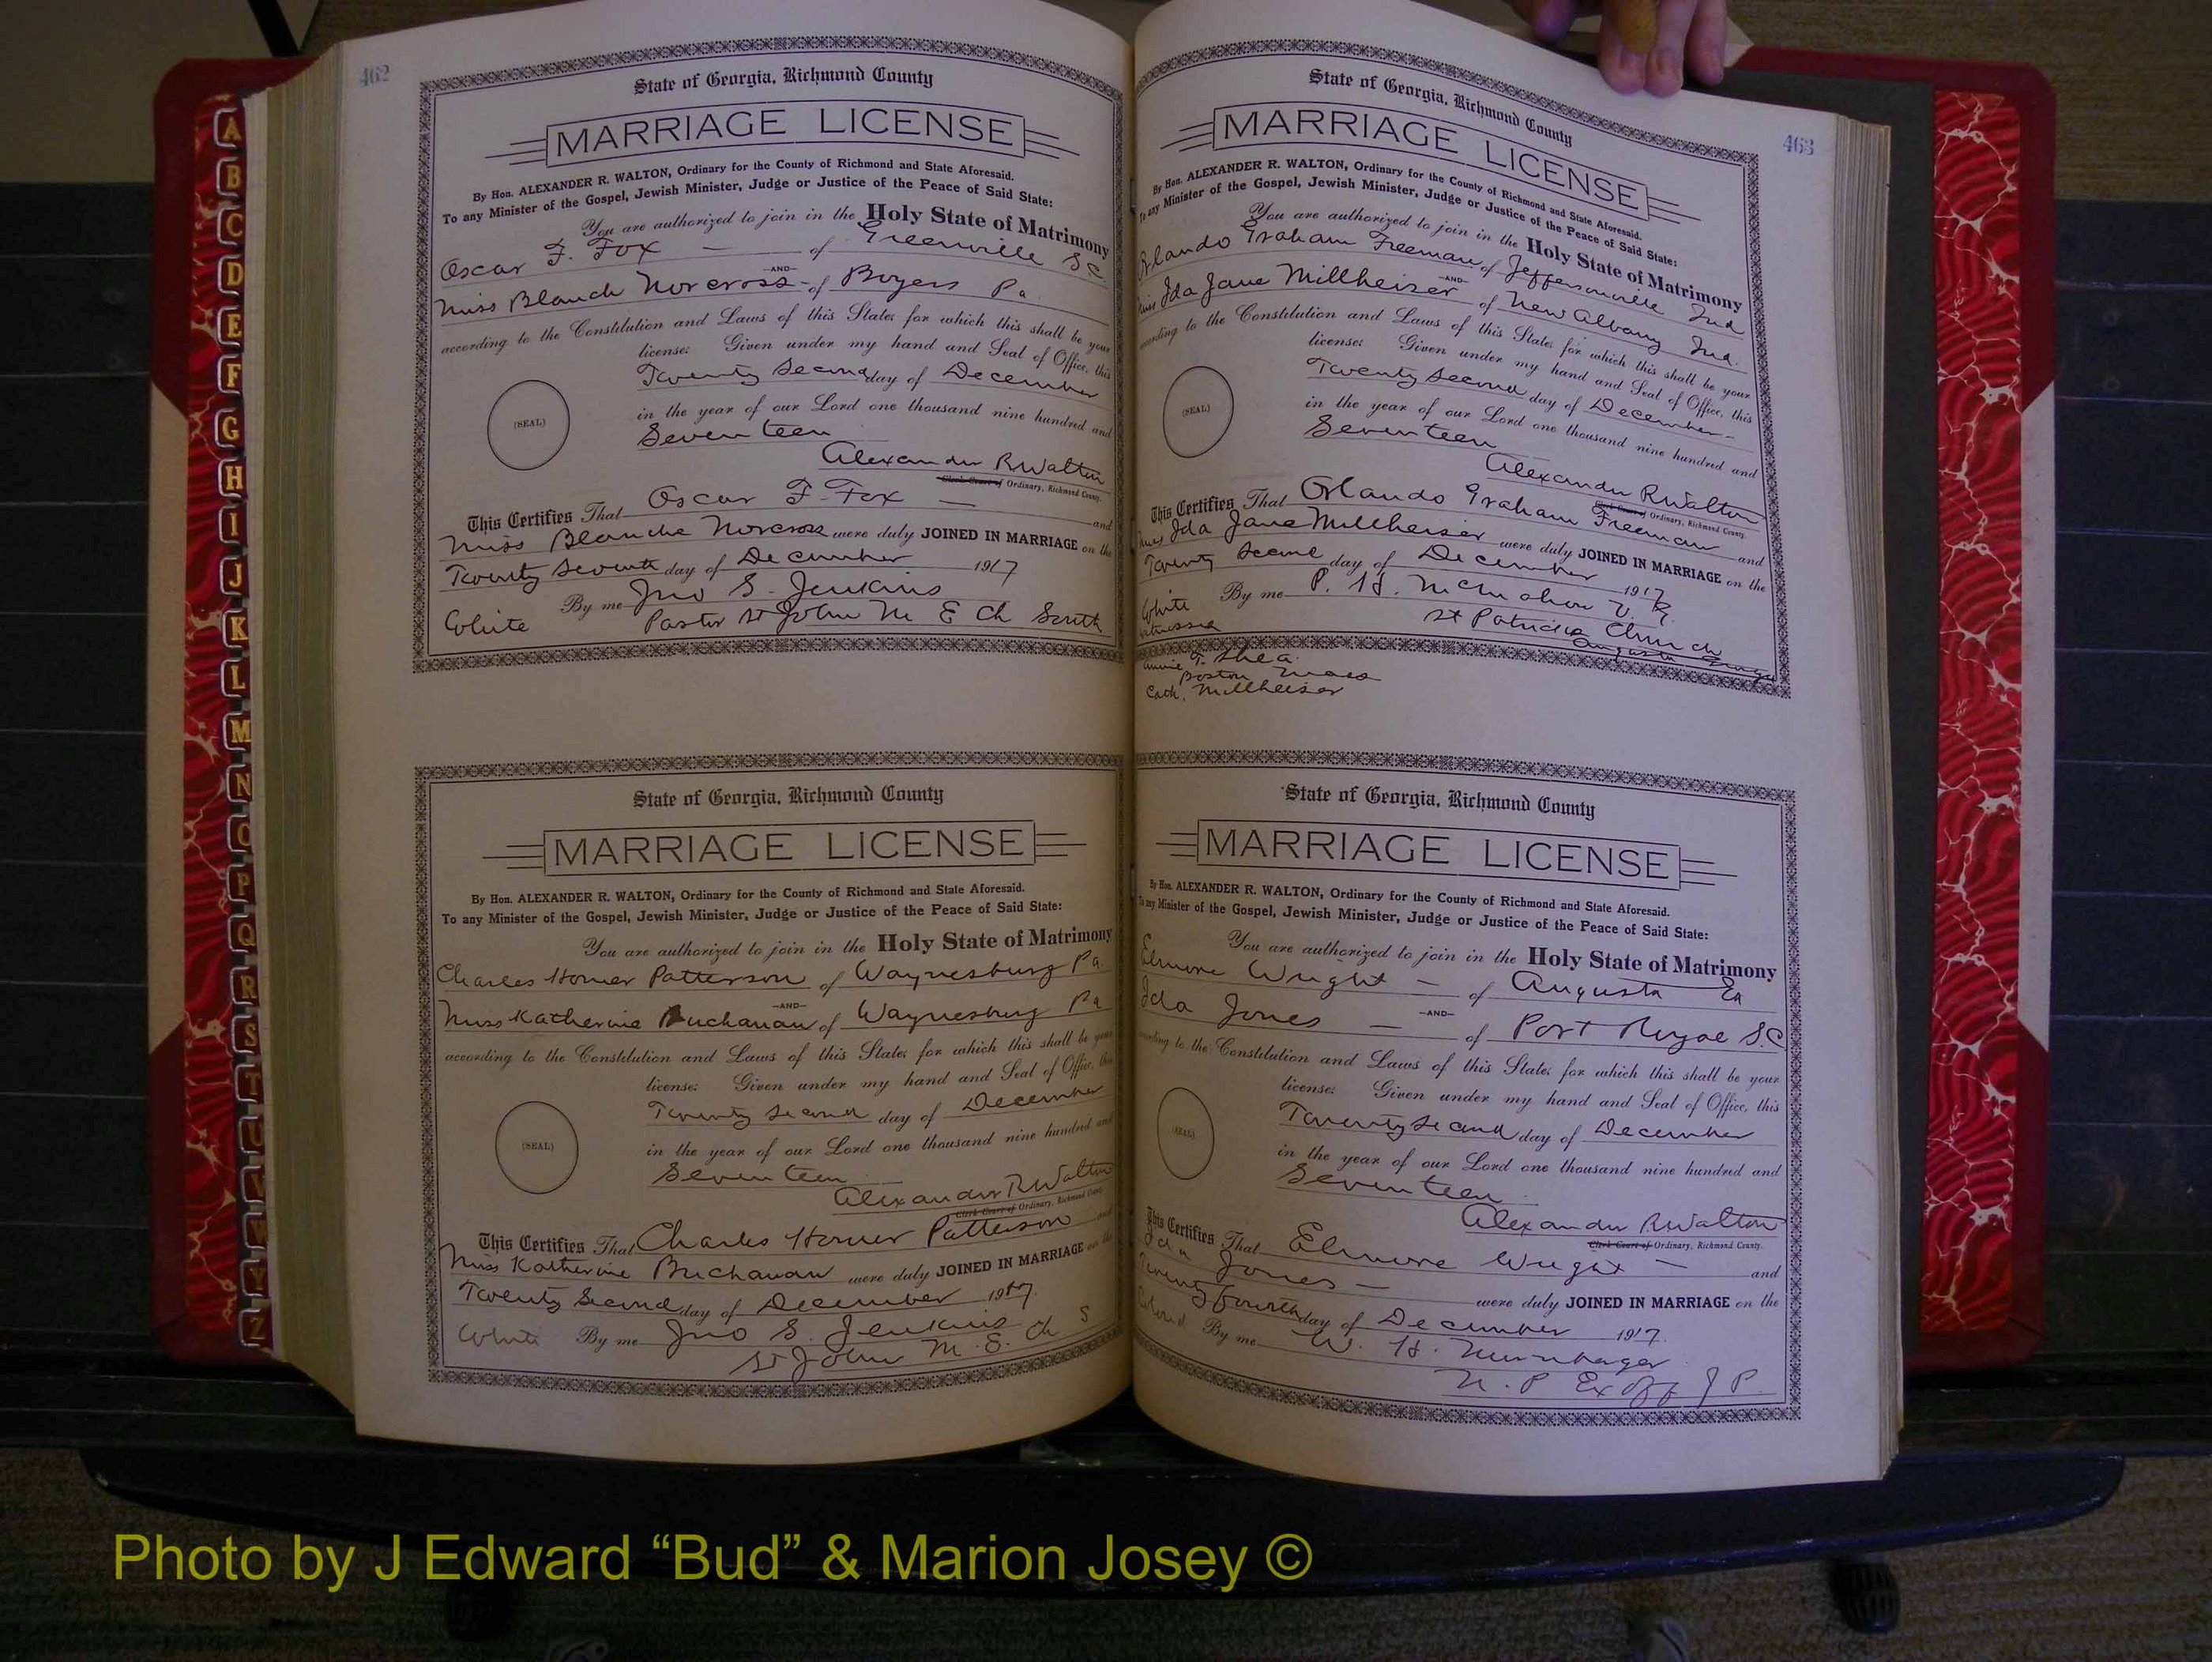 462
State of Georgia, Richmond County
MARRIAGE LICENSE
By Hon. ALEXANDER R. WALTON, Ordinary for the County of Richmond and State Aforesaid.
To any Minister of the Gospel, Jewish Minister, Judge or Justice of the Peace of Said State:
You are authorized to join in the Holy State of Matrimony
Oscar F. Fox — of Greenville S C
—AND—
Miss Blanch Norcross - of Boyers Pa.
according to the Constitution and Laws of this State; for which this shall be your
license: Given under my hand and Seal of Office, this
Twenty Second day of December
in the year of our Lord one thousand nine hundred and
(SEAL)
Seventeen
Alexander R Walton
Clerk Court of Ordinary, Richmond County.
This Certifies That Oscar F. Fox — and
Miss Blanche Norcross were duly JOINED IN MARRIAGE on the
Twenty Seventh day of December 1917
By me Jno S. Jenkins
White Pastor St John M E Ch South
State of Georgia, Richmond County
MARRIAGE LICENSE
By Hon. ALEXANDER R. WALTON, Ordinary for the County of Richmond and State Aforesaid.
To any Minister of the Gospel, Jewish Minister, Judge or Justice of the Peace of Said State:
You are authorized to join in the Holy State of Matrimony
Charles Homer Patterson of Waynesburg Pa.
—AND—
Miss Katherine Buchanan of Waynesburg Pa
according to the Constitution and Laws of this State; for which this shall be your
license: Given under my hand and Seal of Office, this
Twenty Second day of December
(SEAL)
in the year of our Lord one thousand nine hundred and
Seventeen
Alexander R Walton
Clerk Court of Ordinary, Richmond County
This Certifies That Charles Homer Patterson and
Miss Katherine Buchanan were duly JOINED IN MARRIAGE on the
Twenty Second day of December 1917.
White By me Jno S. Jenkins
St John M. E. Ch S
463
State of Georgia, Richmond County
MARRIAGE LICENSE
By Hon. ALEXANDER R. WALTON, Ordinary for the County of Richmond and State Aforesaid.
To any Minister of the Gospel, Jewish Minister, Judge or Justice of the Peace of Said State:
You are authorized to join in the Holy State of Matrimony
Orlando Graham Freeman of Jeffersonville Ind
—AND—
Miss Ida Jane Millheiser of New Albany Ind.
according to the Constitution and Laws of this State; for which this shall be your
license: Given under my hand and Seal of Office, this
Twenty Second day of December -
(SEAL)
in the year of our Lord one thousand nine hundred and
Seventeen
Alexander R Walton
Clerk Court of Ordinary, Richmond County.
This Certifies That Orlando Graham Freeman and
Miss Ida Jane Millheiser were duly JOINED IN MARRIAGE on the
Twenty Second day of December 1917
By me P. H. McMahon V. R.
White St Patricks Church
witnesses Augusta Georgia
Annie T. Shea
Boston Mass
Cath. Millheiser
State of Georgia, Richmond County
MARRIAGE LICENSE
By Hon. ALEXANDER R. WALTON, Ordinary for the County of Richmond and State Aforesaid.
To any Minister of the Gospel, Jewish Minister, Judge or Justice of the Peace of Said State:
You are authorized to join in the Holy State of Matrimony
Elmore Wright — of Augusta Ga
—AND—
Ida Jones — of Port Royal S.C.
according to the Constitution and Laws of this State; for which this shall be your
license: Given under my hand and Seal of Office, this
Twenty Second day of December
(SEAL)
in the year of our Lord one thousand nine hundred and
Seventeen
Alexander R Walton
Clerk Court of Ordinary, Richmond County.
This Certifies That Elmore Wright — and
Ida Jones — were duly JOINED IN MARRIAGE on the
Twenty Fourth day of December 1917.
Colored By me W. H. Nurnberger
N. P Ex Off J P.
A
B
C
D
E
F
G
H
I
J
K
L
M
N
O
P
Q
R
S
T
U
V
W
Y
Z
Photo by J Edward “Bud” & Marion Josey ©